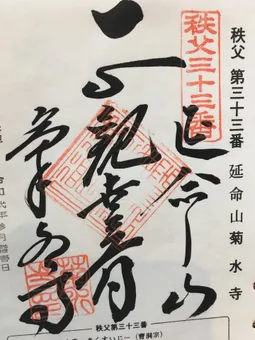 秩父 第三十三番 延命山菊水寺
秩父三十三番
延命山
観世音
菊水寺
秩父第三十三番
くすいじー（曹洞宗）